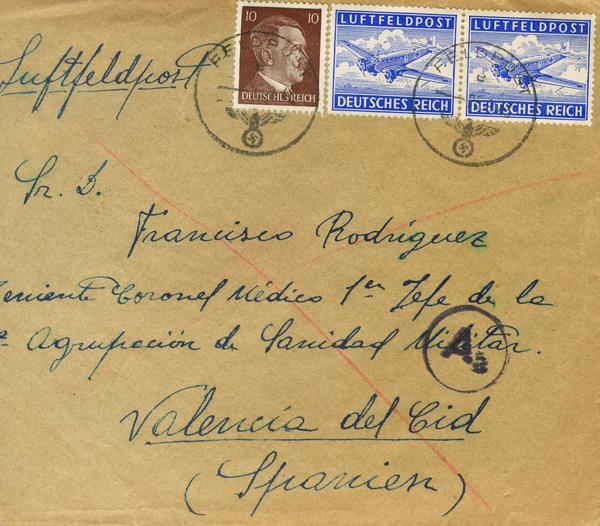 10 10
DEUTSCHES REICH
LUFTFELDPOST
DEUTSCHES REICH
LUFTFELDPOST
DEUTSCHES REICH
FELDPOST
FELDPOST
Luftfeldpost
Sr. D.
Francisco Rodríguez
Teniente Coronel Médico 1er Jefe de la
Agrupación de Sanidad Militar.
A
Valencia del Cid
(Spanien)